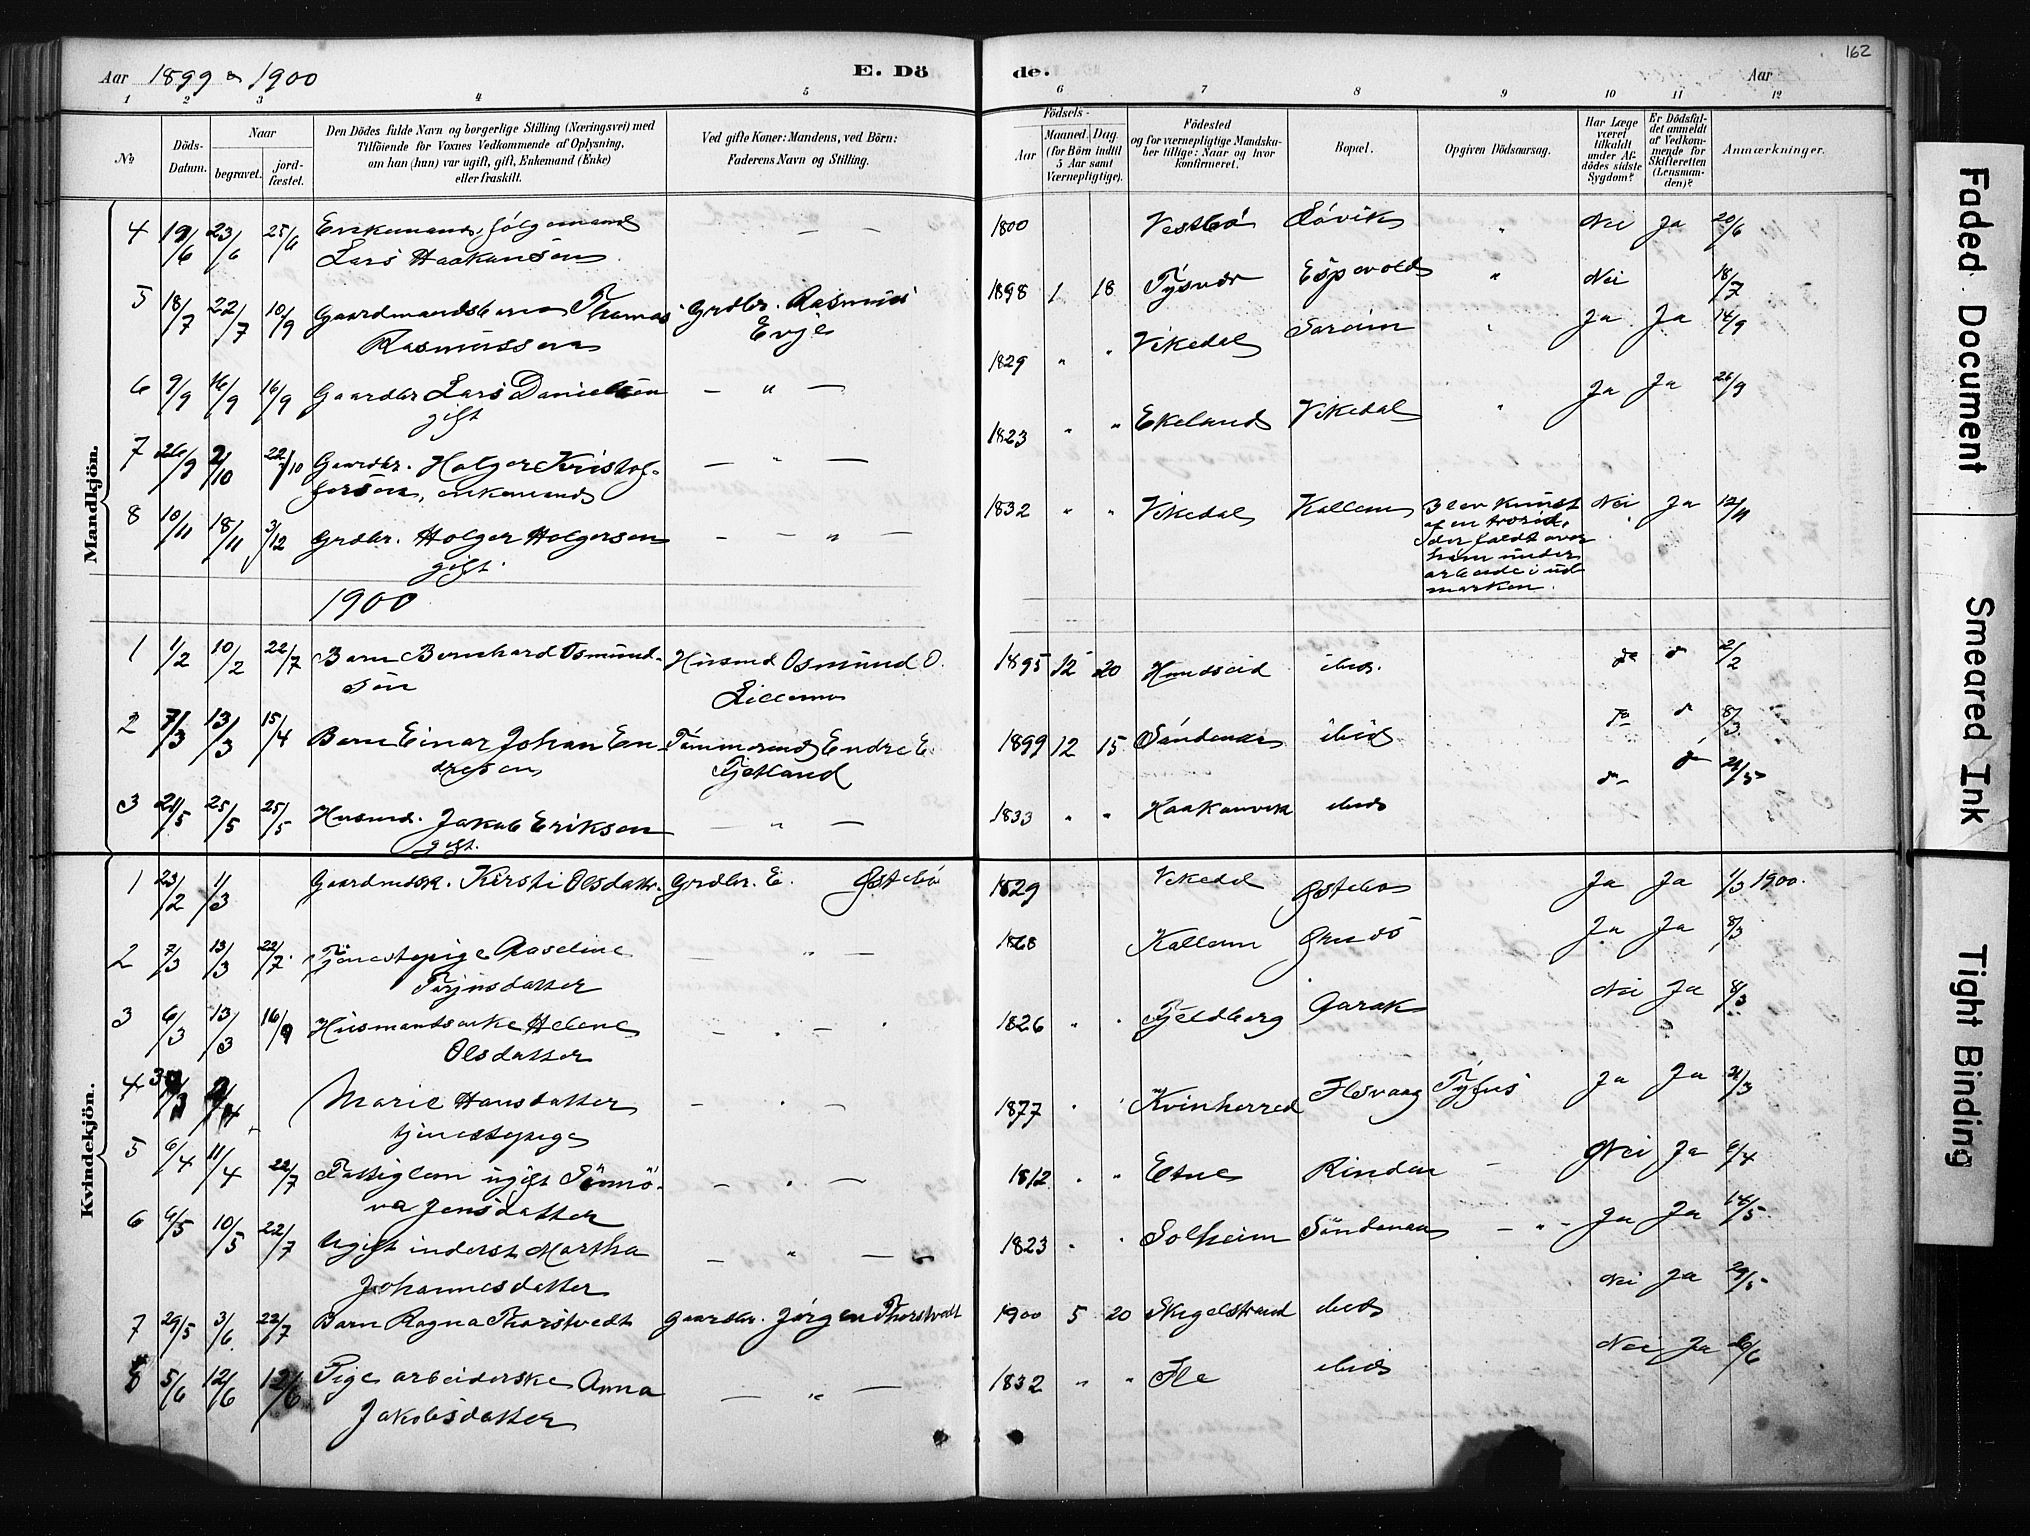 162
Aar 1899 & 1900 E. Dö de. Aar
1 2 3 4 5 6 7 8 9 10 11 12
No
Döds-Datum.
Naar
begravet. jord-fæstet.
Den Dödes fulde Navn og borgerlige Stilling (Næringsvei) med
Tilföiende for Voxnes Vedkommende af Oplysning,
om han (hun) var ugift, gift, Enkemand (Enke)
eller fraskilt.
Ved gifte Koner: Mandens, ved Börn:
Faderens Navn og Stilling.
Födsels-
Aar Maaned. Dag.
(for Börn indtil
5 Aar samt
Værnepligtige).
Födested
og for værnepligtige Mandska-
ber tillige: Naar og hvor
konfirmeret.
Bopæl.
Opgiven Dödsaarsag.
Har Læge
været
tilkaldt
under Af-
dödes sidste
Sygdom?
Er Dödsfal-
det anmeldt
af Vedkom-
mende for
Skifteretten
(Lensman-
den)?
Anmærkninger.
Mandkjön.
4 19/6 23/6 25/6 Enkemand, følgemand — — 1800 Vestbö Lövik " Nei Ja 20/6
Lars Haakansön
5 18/7 22/7 10/9 Gaardmandsbarn Thomas Grdbr. Rasmus 1898 1 18 Tysvær Espevold " Nei 18/7
Rasmussen Evje
6 9/9 16/9 16/9 Gaardbr Lars Danielsen — " — 1829 " " Vikedal Sareim " Ja Ja 14/9
gift
7 26/9 2/10 22/10 Gaardbr. Holger Kristof- — " — 1823 " " Ekeland Vikedal " Ja Ja 26/9
fersön, enkemand
8 10/11 18/11 3/12 Grdbr. Holger Holgersen — — " — 1832 " " Vikedal Kallem Blev knust Nei Ja 12/11
gift. af en
der faldt over
ham under
arbeide i ud
marken.
1900
1 1/2 10/2 22/7 Barn Bernhard Osmund- Husmd Osmund O. 1895 12 20 Hundseid ibid. 2/2
sön
2 7/3 13/3 15/4 Barn Einar Johan En- Endre E. 1899 12 15 Søndenaa ibid 8/3
dresen Tjetland
3 21/5 25/5 25/5 Husmd. Jakob Eriksen — " — 1833 " " Haakonvik ibid
gift.
Kvindekjön.
1 23/2 1/3 Kirsti Olsdatr. Grdbr. E. Østebö 1829 Vikedal Østebö Ja Ja 1/3 1900.
2 7/3 13/3 22/7. Tjenestepige Aaseline — " — Kallem Ja Ja 8/3
3 6/3 13/3 16/9 Husmandsenke Helene — . — . 1826 " . Fjeldberg Nei Ja 8/3
Olsdatter
4 Marie Hansdatter — . — 1877 . . Kvinherred Ilsvaag Tyfus Ja Ja 31/3
tjenestepige
5 6/4 11/4 22/7 Fattiglem ugift Sönnö- — . — 1812 . " Etne Rinden — Nei Ja 6/4
va Jensdatter
6 6/5 10/5 22/7 Ugift inderst Martha — " — 1823 . . Solheim Söndenaa — " — Ja Ja 18/5
Johannesdatter
7 29/5 3/6. 22/7 Barn Ragna Thorstvedt Gaardbr. Jørgen Thorstvedt 1900 5 20 ibid Nei Ja 29/5
8 5/6 12/6 12/6 Pige arbeiderske Anna — " — 1832 " " Ile ibid Nei Ja 6/6
Jakobsdatter
Faded Document
Smeared Ink
Tight Binding